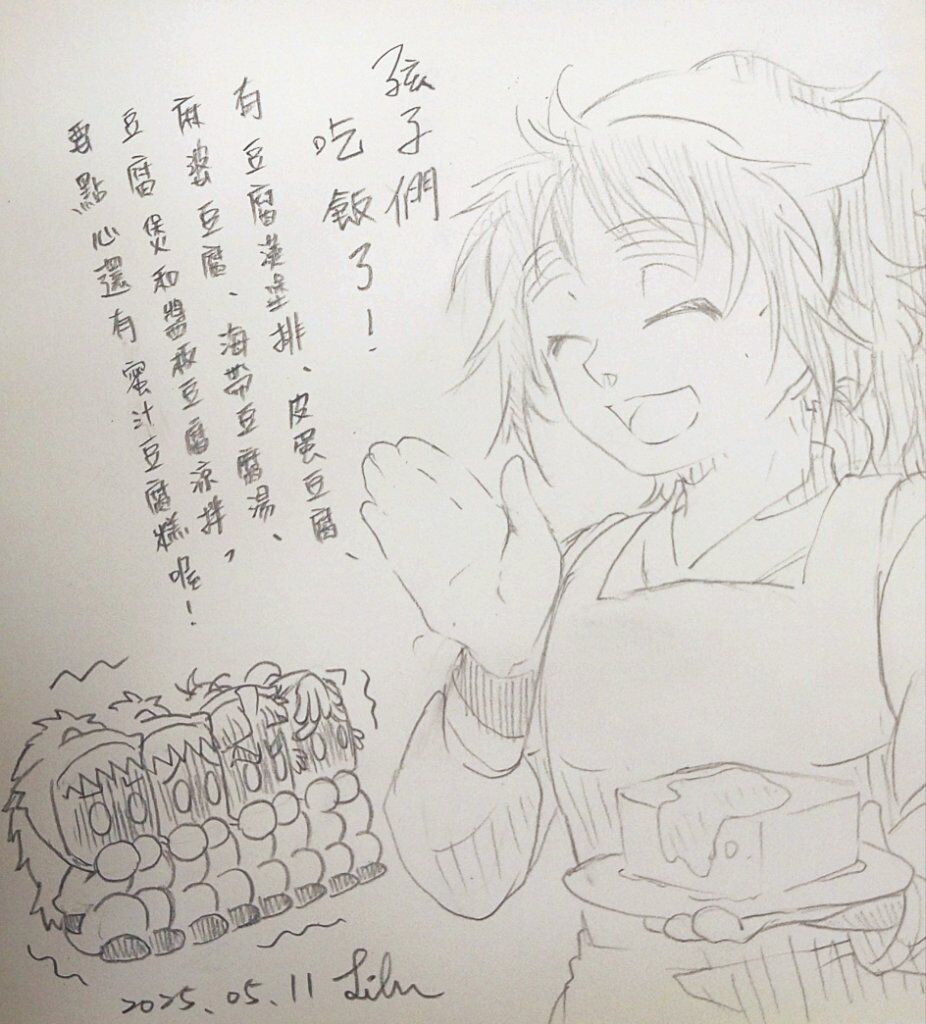 孩子們
吃飯了！
有豆腐漢堡排、皮蛋豆腐、
麻婆豆腐、海帶豆腐湯、
豆腐煲和醬板豆腐涼拌，
要點心還有蜜汁豆腐糕喔！
2025.05.11